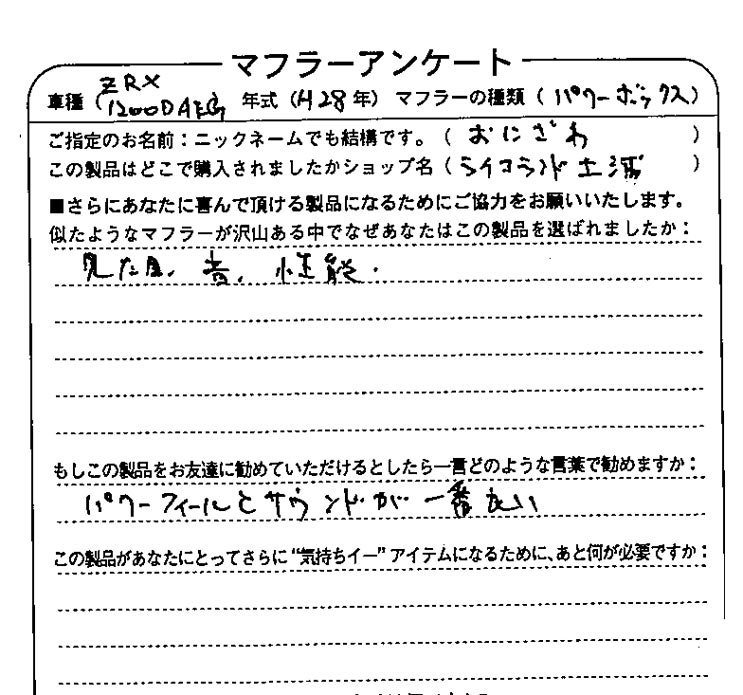 マフラーアンケート
車種（ZRX 1200DAEG 年式（H28年）マフラーの種類（パワーボックス）
ご指定のお名前：ニックネームでも結構です。（おにざわ）
この製品はどこで購入されましたかショップ名（ライコランド土浦）
■さらにあなたに喜んで頂ける製品になるためにご協力をお願いいたします。
似たようなマフラーが沢山ある中でなぜあなたはこの製品を選ばれましたか：
見た目、音、性能.
もしこの製品をお友達に勧めていただけるとしたら一言どのような言葉で勧めますか：
パワーフィールとサウンドが一番良い
この製品があなたにとってさらに“気持ちイー”アイテムになるために、あと何が必要ですか：